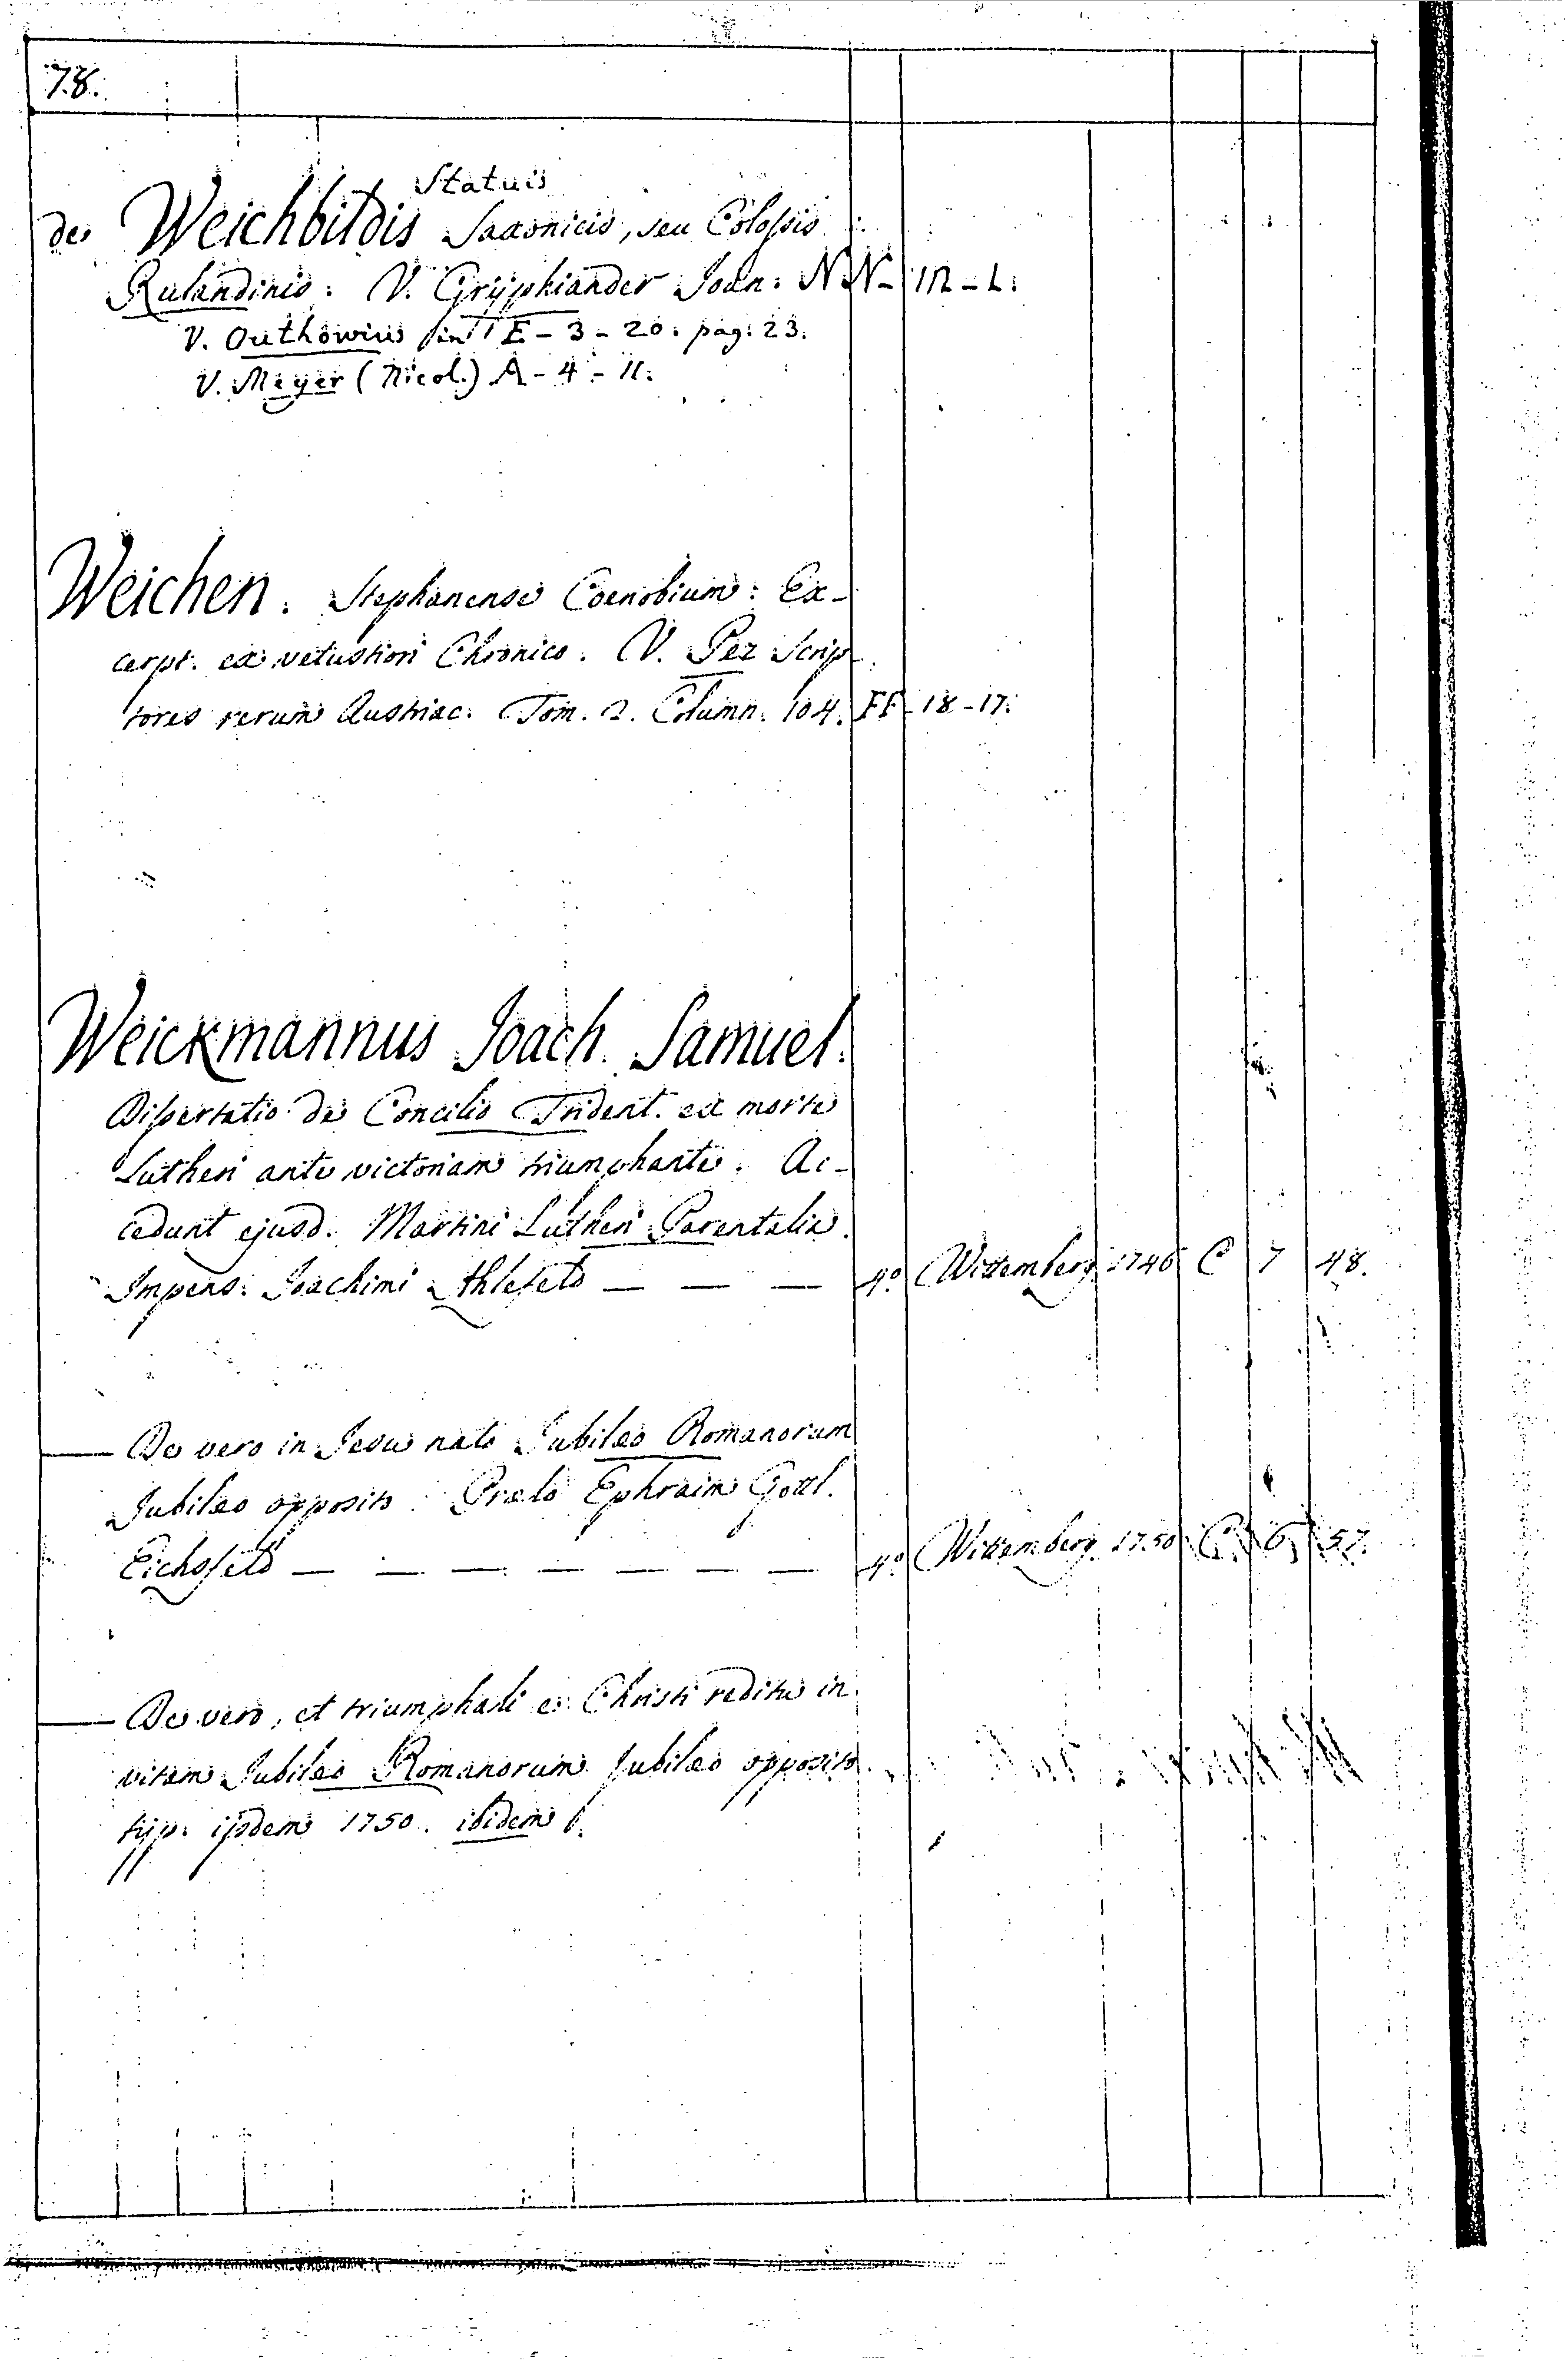 78.
Statuis
de Weichbildis Saxonicis, seu Colossis
Rulandinis: V. Gryphiander Joan: NN-12-L:
V. Outhowius in E-3-20: pag: 23.
V. Meyer (Nicol.) A-4-11:
Weichen. Stephanense Coenobium: Ex-
cerpt. ex vetustiori Chronico. V. Pez Scrip-
tores rerum Austriac: Tom. 2. Column: 104. FF-18-17:
Weickmannus Joach. Samuel.
Dissertatio de Concilio Trident. ex morte
Lutheri ante victoriam triumphante. Ac-
cedunt ejusd. Martini Lutheri Parentalia.
Impens: Joachimi Ahlefeld — — — 4o Wittemberg 1746 C 7 48.
— De vero in Jesu nato Jubilæo Romanorum
Jubilæo opposito. Prælo Ephraim Gottl.
Eichsfeld — — — — — — — 4o Wittemberg 1750 C. 6 57.
— De vero, et triumphali ex Christi reditu in
vitam Jubilæo Romanorum Jubilæo opposito
typ: iisdem 1750. ibidem